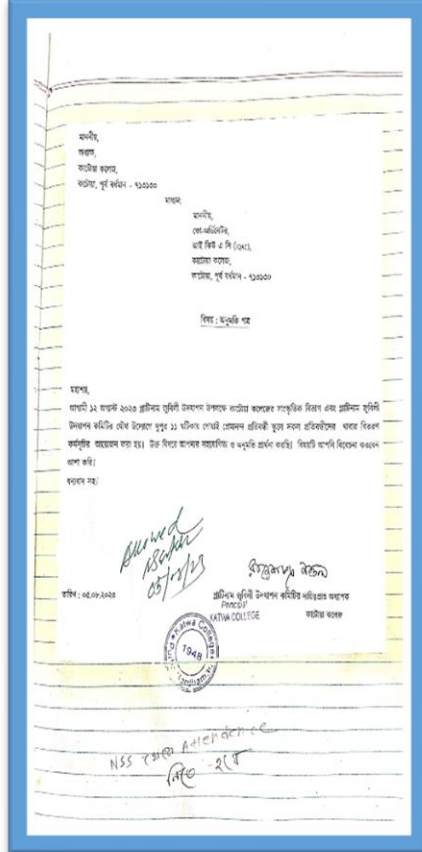 মাননীয়,
অধ্যক্ষ,
কাটোয়া কলেজ,
কাটোয়া, পূর্ব বর্ধমান - ৭১৩১৩০
মাধ্যম:
মাননীয়,
কো-অর্ডিনেটর,
আই কিউ এ সি (IQAC),
কাটোয়া কলেজ,
কাটোয়া, পূর্ব বর্ধমান - ৭১৩১৩০
বিষয় : অনুমতি পত্র
মহাশয়,
আগামী ১২ অগাস্ট ২০২৩ প্লাটিনাম জুবিলী উদযাপন উপলক্ষে কাটোয়া কলেজের সাংস্কৃতিক বিভাগ এবং প্লাটিনাম জুবিলী
উদযাপন কমিটির যৌথ উদ্যোগে দুপুর ১১ ঘটিকায় প্রেমানন্দ প্রতিবন্ধী স্কুলে সকল প্রতিবন্ধীদের খাবার বিতরণ
কর্মসূচির আয়োজন করা হয়। উক্ত বিষয়ে আপনার সহযোগিতা ও অনুমতি প্রার্থনা করছি। বিষয়টি আপনি বিবেচনা করবেন
আশা করি।
ধন্যবাদ সহ।
Allowed
05/08/23
তারিখ : ০৫.০৮.২০২৩
প্লাটিনাম জুবিলী উদযাপন কমিটির দায়িত্বপ্রাপ্ত অধ্যাপক
Principal
KATWA COLLEGE
কাটোয়া কলেজ
Katwa College
1948
NSS থেকে Attendence
নিতে হবে